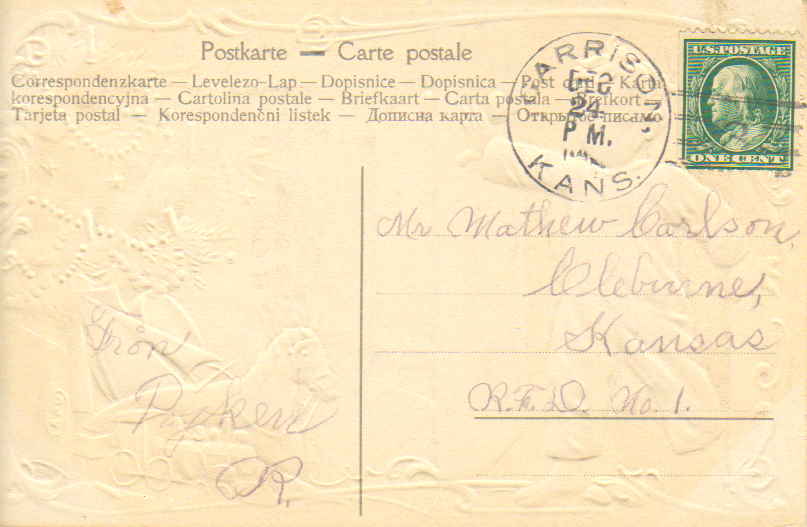 Postkarte — Carte postale
Correspondenzkarte — Levelezo-Lap — Dopisnice — Dopisnica — Post card — Karta
korespondencyjna — Cartolina postale — Briefkaart — Carta postala — Brefkort
Tarjeta postal — Korespondenčni listek — Дописна карта — Открытое письмо
ARRISON,
DEC
24
P M.
KANS.
U.S. POSTAGE
ONE CENT
Mr Mathew Carlson,
Cleburne,
Kansas
R.F.D. No. 1.
Från
Pojken
R.